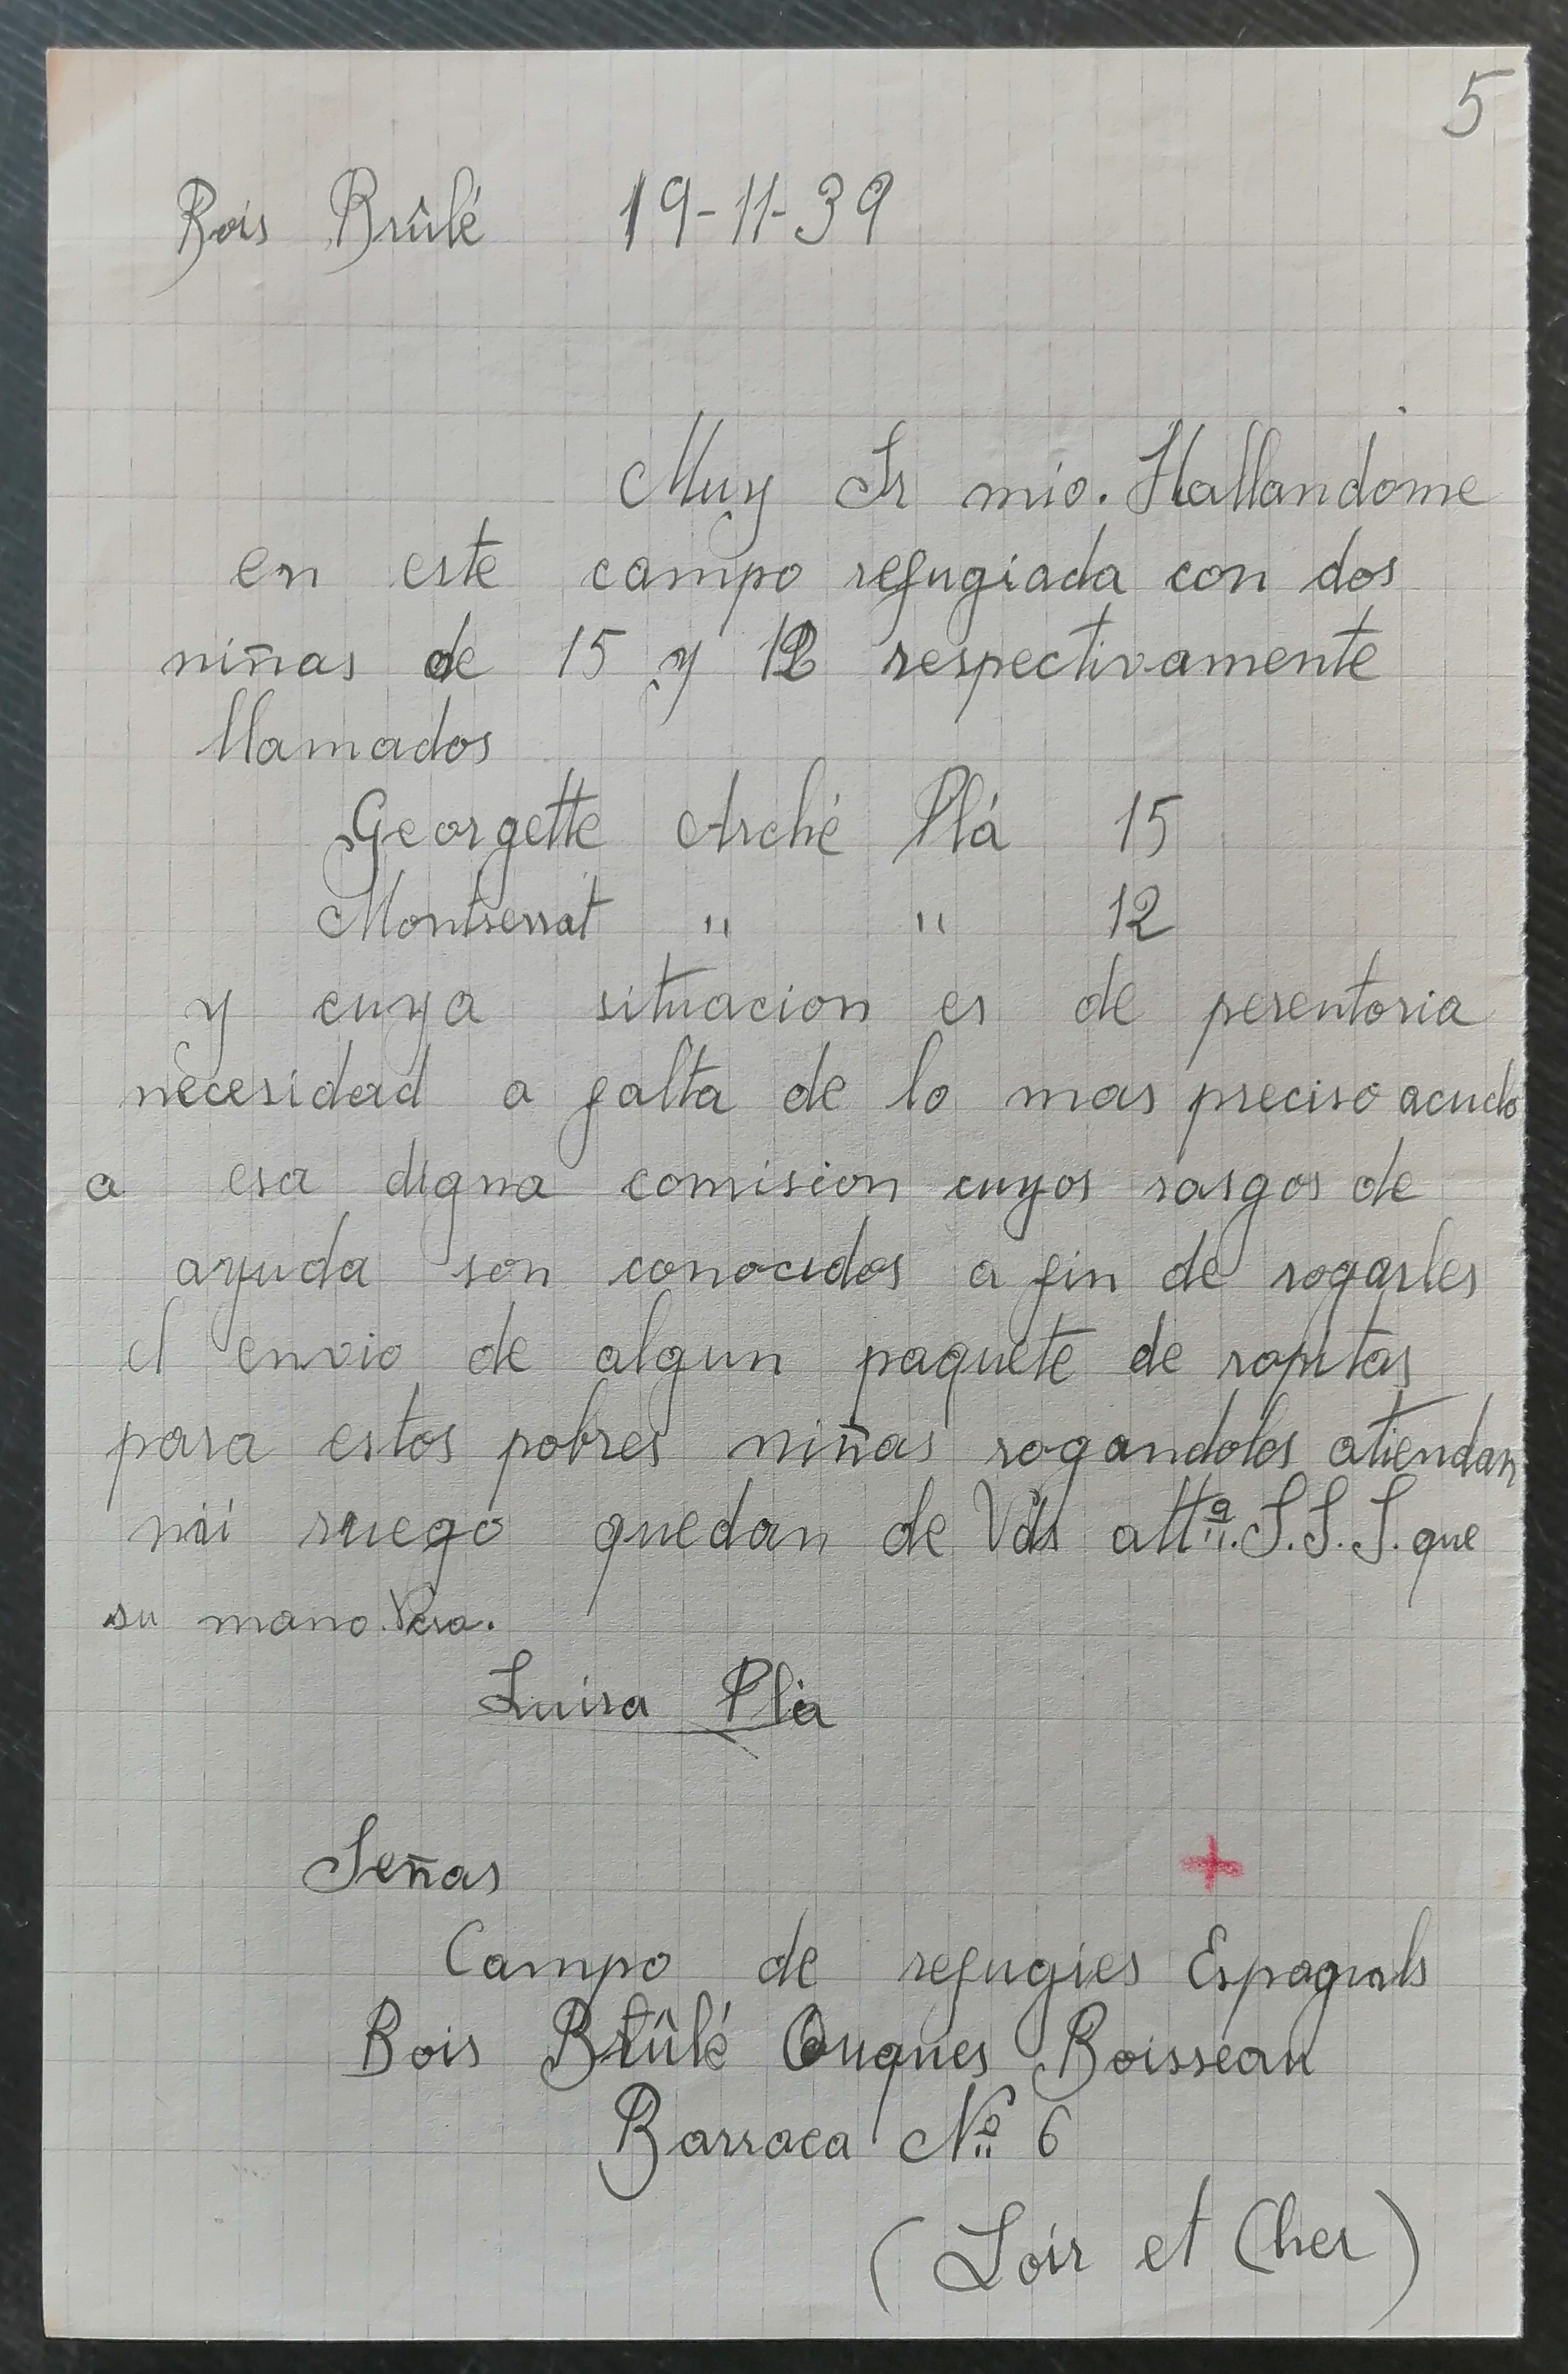 5
Bois Brûlé 19-11-39
Muy Sr mio. Hallandome
en este campo refugiada con dos
niñas de 15 y 12 respectivamente
llamados
Georgette Arché Plá 15
Montserrat " " 12
y cuya situacion es de perentoria
necesidad a falta de lo mas preciso acudo
a esa digna comision cuyos rasgos de
ayuda son conocidos a fin de rogarles
el envio de algun paquete de ropitas
para estos pobres niñas rogandoles atiendan
mi ruego quedan de Vds attª. S.S.S. que
su mano Besa.
Luisa Pla
Señas
Campo de refugies Espagnols
Bois Brûlé Ouques Boisseau
Barraca Nº 6
(Loir et Cher)